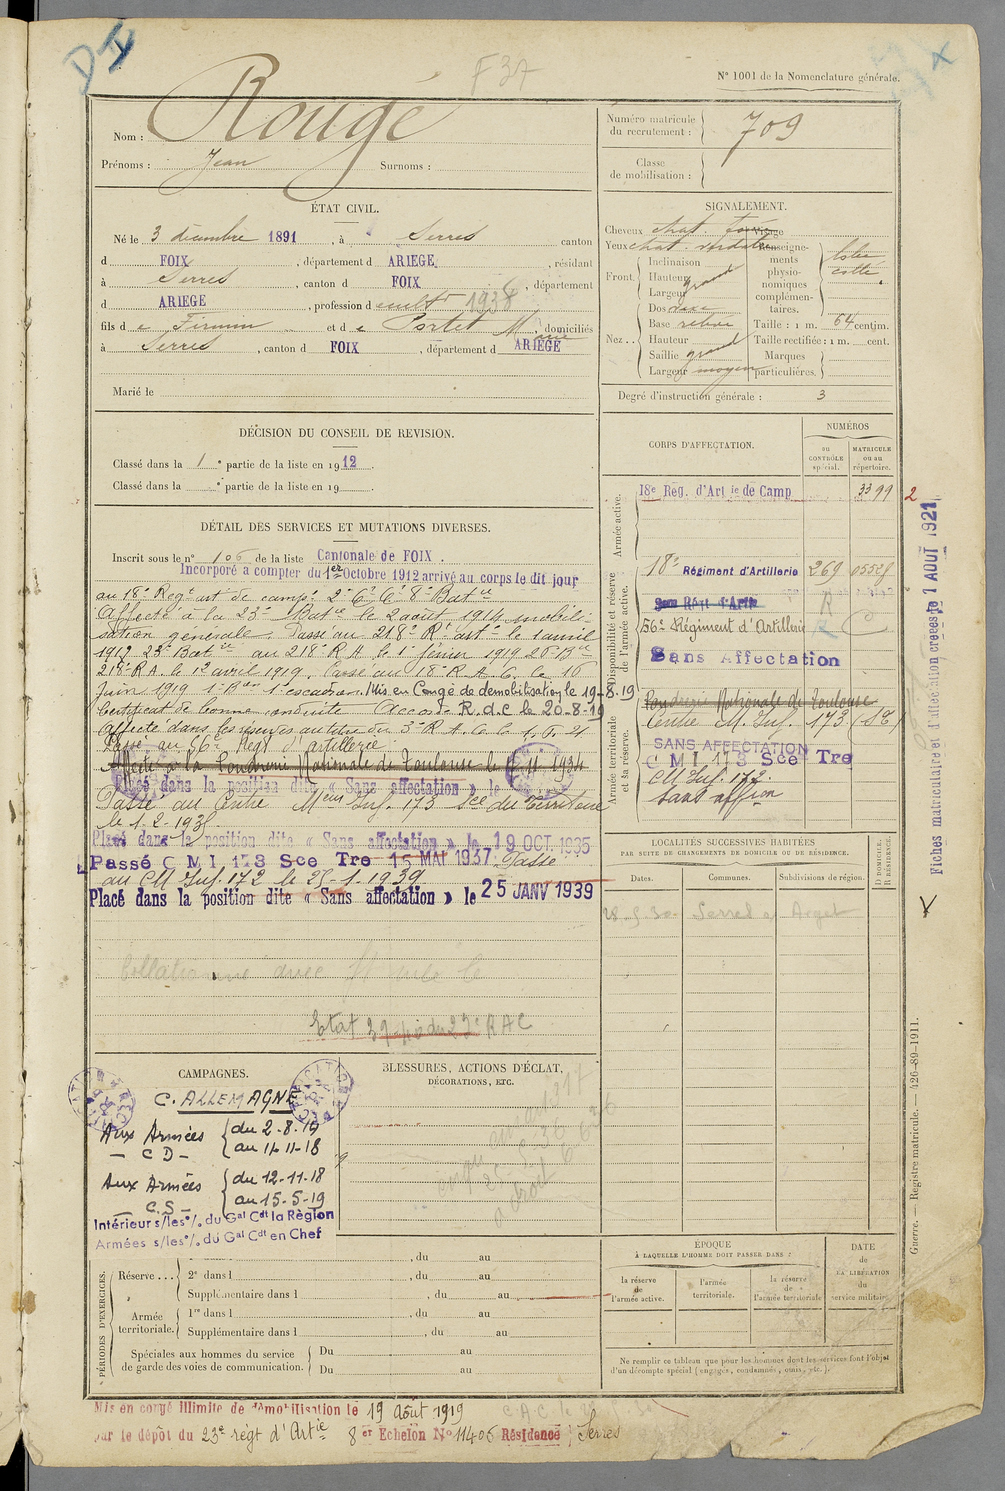 D I
F 37
N° 1001 de la Nomenclature générale.
Nom : Rougé
Prénoms : Jean Surnoms :
Numéro matricule du recrutement : 709
Classe de mobilisation :
ÉTAT CIVIL.
Né le 3 décembre 1891, à Serres canton
d FOIX, département d ARIEGE, résidant
à Serres, canton d FOIX, département
d ARIEGE, profession d cultr 1938
fils d e Firmin et d e Portet Marie, domiciliés
à Serres, canton d FOIX, département d ARIEGE
Marié le
SIGNALEMENT.
Cheveux chat.
Yeux chat. verdâtre
Front. Inclinaison
Hauteur grand
Largeur
Nez.. Dos
Base relevé
Hauteur
Saillie grand
Largeur moyen
Visage
Renseignements physionomiques complémentaires.
Taille : 1 m. 64 centim.
Taille rectifiée : 1 m. cent.
Marques particulières.
Degré d'instruction générale : 3
DÉCISION DU CONSEIL DE REVISION.
Classé dans la 1e partie de la liste en 1912.
Classé dans la e partie de la liste en 19
CORPS D'AFFECTATION.
NUMÉROS
au CONTRÔLE spécial.
MATRICULE ou au répertoire.
Armée active.
18e Reg. d'Artie de Camp 3399 2
Disponibilité et réserve de l'armée active.
18e Régiment d'Artillerie 269
56e Régiment d'Artillerie
Sans Affectation
Armée territoriale et sa réserve.
Poudrerie Nationale de Toulouse
Centre M. Inf. 173 (SE)
SANS AFFECTATION
C M I 173 Sce Tre
CM Inf. 172.
sans affon
DÉTAIL DES SERVICES ET MUTATIONS DIVERSES.
Inscrit sous le n° 106 de la liste Cantonale de FOIX.
Incorporé à compter du 1er Octobre 1912 arrivé au corps le dit jour
au 18e Régt art de campe 2e Cr Ce 8e Batie
Affecté à la 23e Batie le 2 août 1914 mobili-
sation générale. Passé au 218e Rt art ie le 1 avril
1917 23e Batie au 218e R A le 1er février 1919 26e Bie
218e R A. le 1er avril 1919. Passé au 18e R. A. C. le 16
Juin 1919 1e Bie 1 escadron. Mis en Congé de démobilisation le 19-8.19
Certificat de bonne conduite Accordé R.d.C le 20-8-19
Affecté dans les réserves au titre du 3e R A C C 1. 1. 21
Passé au 56e Régt d'artillerie
Affecté à la Poudrerie Nationale de Toulouse le 6. 11. 1934
Placé dans la position dite « Sans affectation » le
Passé au Centre Mon Inf. 173 Sce du Territoire
le 1-2-1935
Placé dans la position dite « Sans affectation » le 19 OCT. 1935
Passé C M I. 173 Sce Tre 15 MAI 1937. Passé
au CM Inf. 172 le 25-1.1939
Placé dans la position dite « Sans affectation » le 25 JANV 1939
Collationné avec
Etat
R A C
LOCALITÉS SUCCESSIVES HABITÉES
PAR SUITE DE CHANGEMENTS DE DOMICILE OU DE RÉSIDENCE.
Dates. Communes. Subdivisions de région. D DOMICILE, R RÉSIDENCE.
28.5.30 Serres s Arget
Fiches matriculaire et d'affectation créées le 1 AOUT 1921
CAMPAGNES.
C. ALLEMAGNE
Aux Armées { du 2-8.19
— C D — au 11-11-18
Aux Armées { du 12-11.18
— C.S — au 15-5-19
Intérieur s/les°/. du Gal Cdt la Région
Armées s/les°/. du Gal Cdt en Chef
BLESSURES, ACTIONS D'ÉCLAT,
DÉCORATIONS, ETC.
PÉRIODES D'EXERCICES.
, du au
Réserve... 2e dans l , du au
Supplémentaire dans l , du au
Armée territoriale. 1re dans l , du au
Supplémentaire dans l , du au
Spéciales aux hommes du service de garde des voies de communication. Du au
Du au
ÉPOQUE
À LAQUELLE L'HOMME DOIT PASSER DANS :
la réserve de l'armée active. l'armée territoriale. la réserve de l'armée territoriale
DATE de LA LIBÉRATION du service militaire.
Ne remplir ce tableau que pour les hommes dont les services font l'objet
d'un décompte spécial (engagés, condamnés, omis, etc.).
Guerre. — Registre matricule. — 426-89-1911.
Mis en congé illimité de démobilisation le 19 Août 1919
par le dépôt du 23e régt d'Artie 8er Echelon No 11406 Résidence } Serres